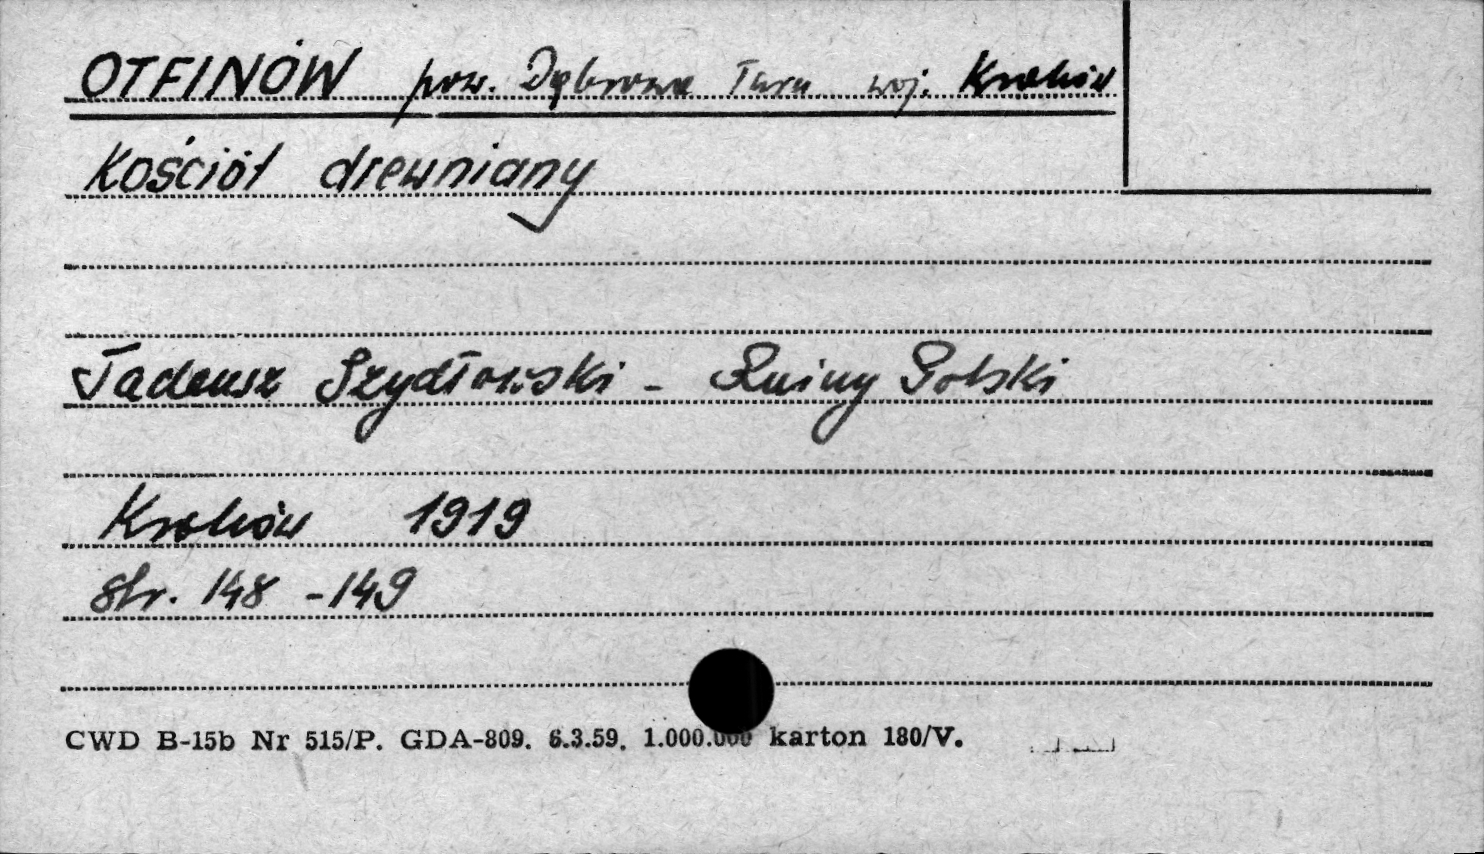 OTFINÓW pow. Dąbrowa Tarn woj. Kraków
Kościół drewniany
Tadeusz Szydłowski - Ruiny Polski
Kraków 1919
str. 148 - 149
CWD B-15b Nr 515/P. GDA-809. 6.3.59. 1.000.000 karton 180/V.